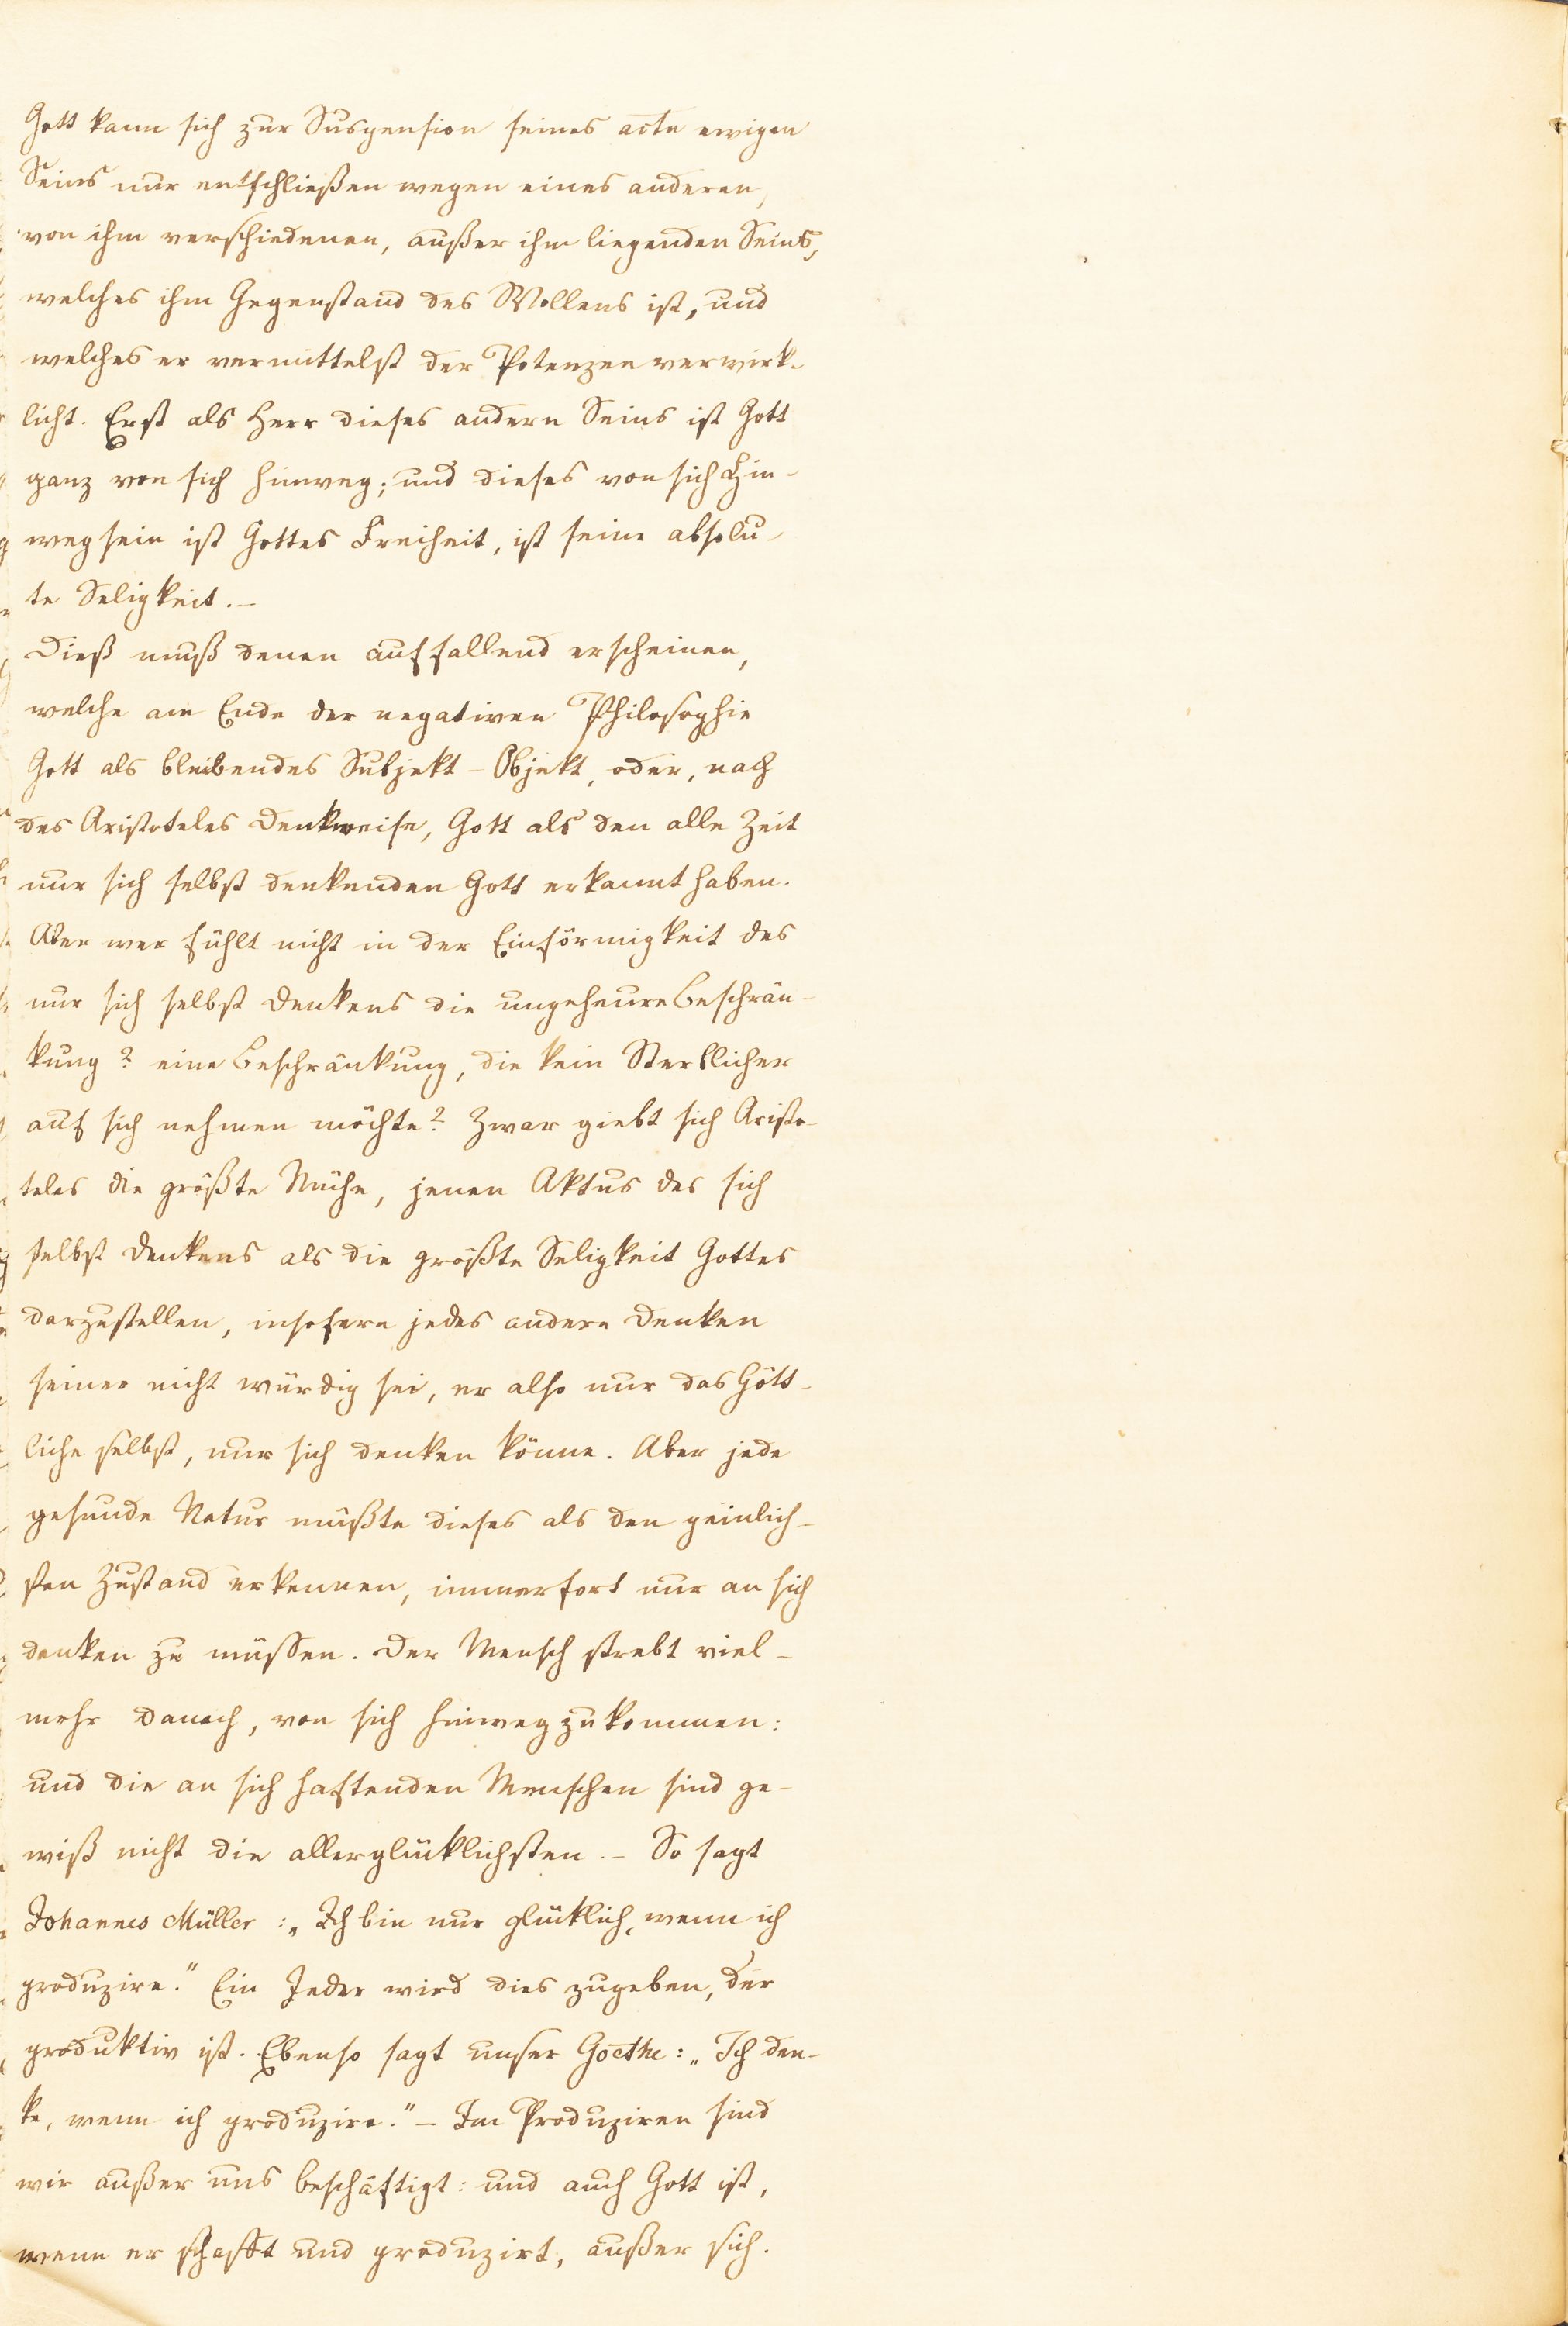 Gott kann sich zur Suspension seines actu ewigen
Seins nur entschließen wegen eines anderen,
von ihm verschiedenen, außer ihm liegenden Seins,
welches ihm Gegenstand des Wollens ist, und
welches er vermittelst der Potenzen verwirk-
licht. Erst als Herr dieses andern Seins ist Gott
ganz von sich hinweg; und dieses von sich Hin-
wegsein ist Gottes Freiheit, ist seine absolu-
te Seligkeit. –
Dieß muß denen auffallend erscheinen,
welche am Ende der negativen Philosophie
Gott als bleibendes Subjekt-Objekt, oder, nach
des Aristoteles Denkweise, Gott als den alle Zeit
nur sich selbst denkenden Gott erkannt haben.
Aber wer fühlt nicht in der Einförmigkeit des
nur sich selbst Denkens die ungeheure Beschrän-
kung? eine Beschränkung, die kein Sterblicher
auf sich nehmen möchte? Zwar giebt sich Aristo-
teles die größte Mühe, jenen Aktus des sich
selbst Denkens als die größte Seligkeit Gottes
darzustellen, insofern jedes andere Denken
seiner nicht würdig sei, er also nur das Gött-
liche selbst, nur sich denken könne. Aber jede
gesunde Natur müßte dieses als den peinlich-
sten Zustand erkennen, immerfort nur an sich
denken zu müssen. Der Mensch strebt viel-
mehr danach, von sich hinwegzukommen:
und die an sich haftenden Menschen sind ge-
wiß nicht die allerglücklichsten. – So sagt
Johannes Müller: „Ich bin nur glücklich, wenn ich
produzire." Ein Jeder wird dies zugeben, der
produktiv ist. Ebenso sagt unser Goethe: „Ich den-
ke, wenn ich produzire." – Im Produziren sind
wir außer uns beschäftigt: und auch Gott ist,
wenn er schafft und produzirt, außer sich.